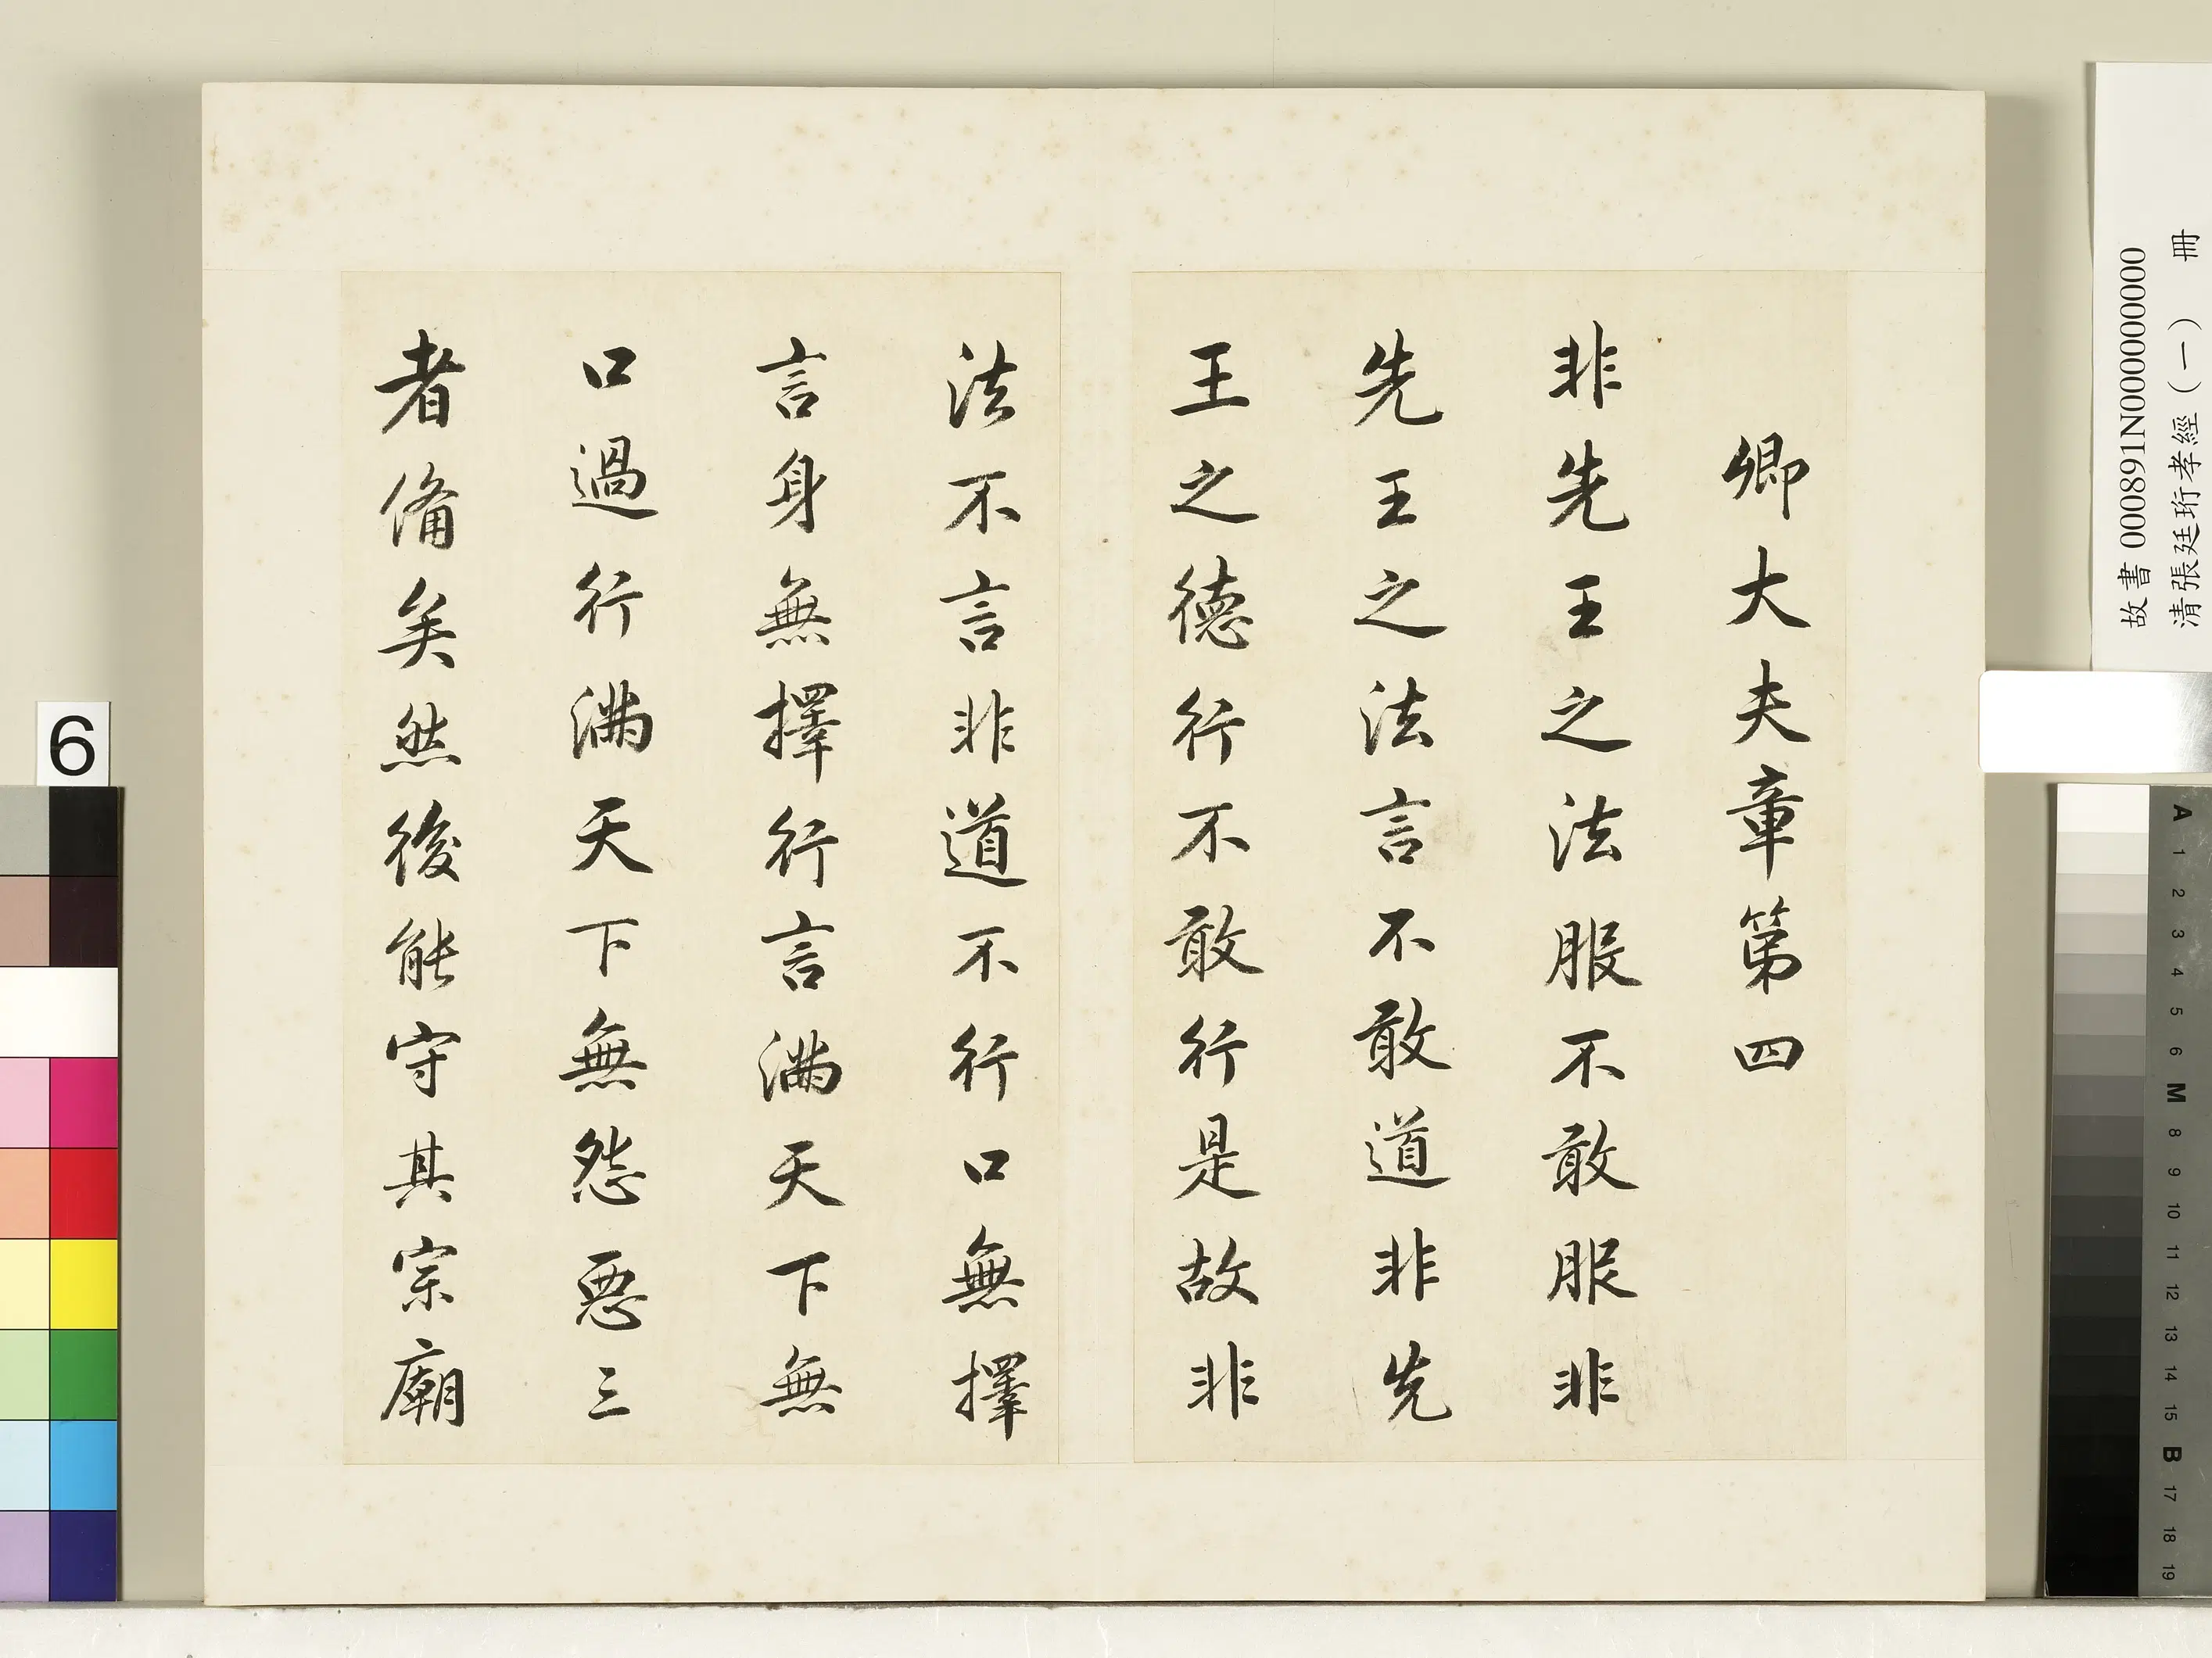 卿大夫章第四
非先王之法服不敢服非
先王之法言不敢道非先
王之德行不敢行是故非
法不言非道不行口無擇
言身無擇行言滿天下無
口過行滿天下無怨惡三
者俻矣然後能守其宗廟
故書 000891N000000000
清張廷珩孝經(一) 冊
6
A
1
2
3
4
5
6
M
8
9
10
11
12
13
14
15
B
17
18
19